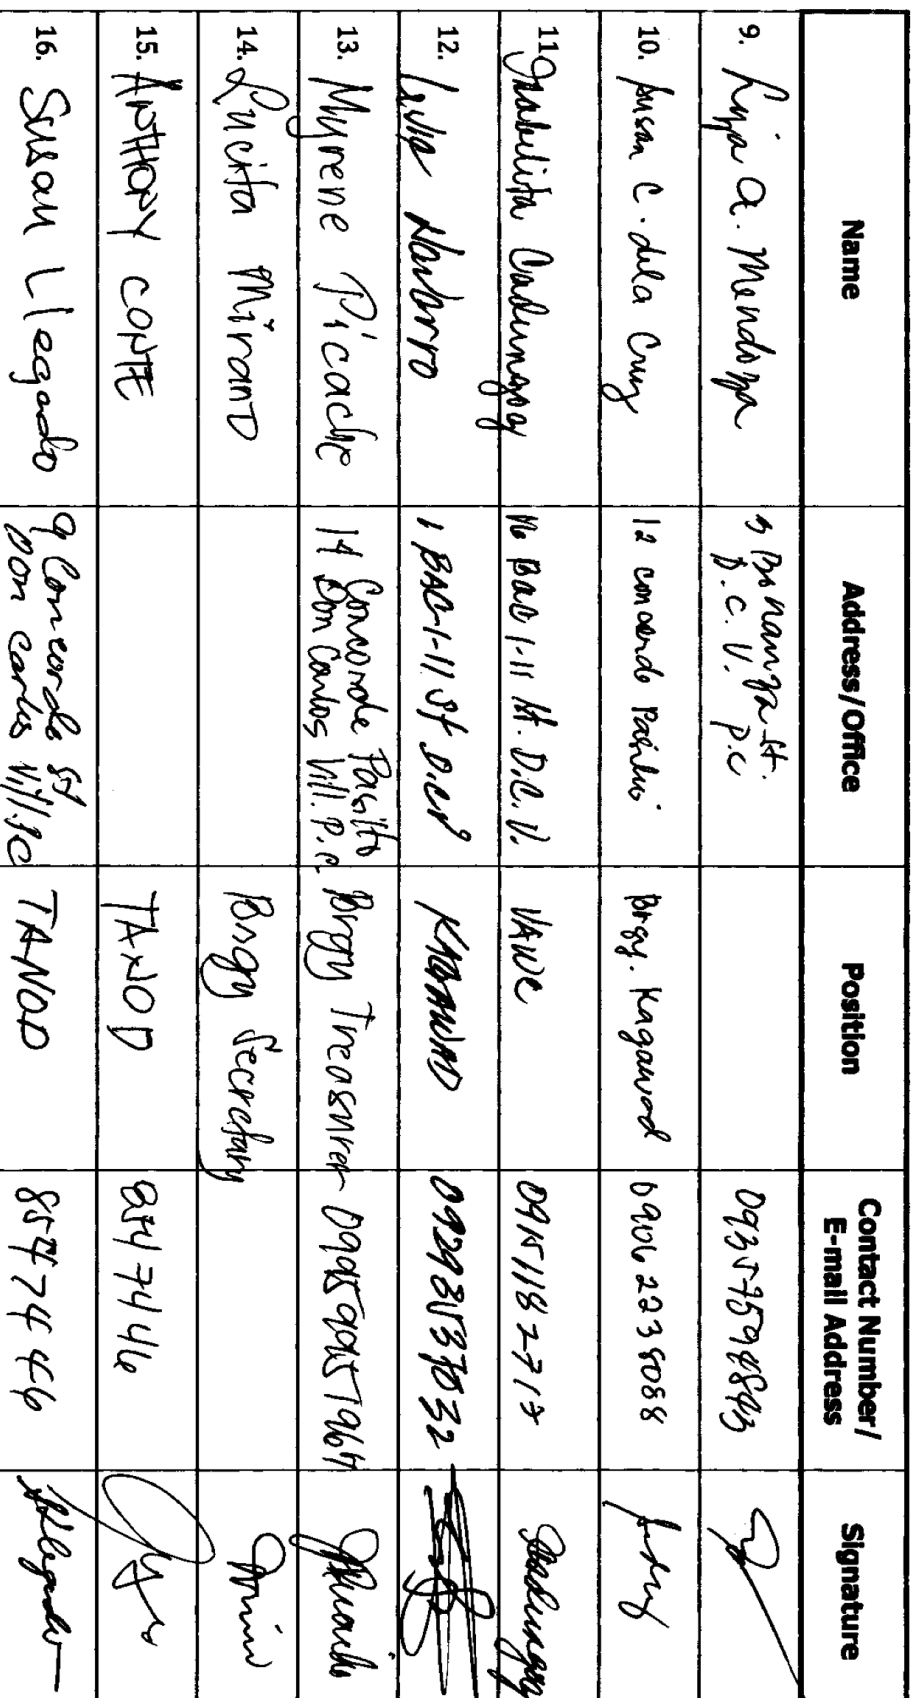 Name Address/Office Position Contact Number/ E-mail Address Signature
9. Luja A. Mendoza 3 Bonanza st. D.C.V. P.C 09357598843
10. Susan C. dela Cruz 12 concord Pasilio Brgy. Kagawad 09062238088
11. Isabelita Cadungog 16 BAC 1-11 St. D.C.V. VAWC 09151182717
12. Navarro 1 BAC-1-11 St D.C.V KAGAWAD
13. Myrene Picache 14 Concorde Pasilio Don Carlos Vill. P.C. Brgy Treasurer
14. Lucita Mirand Brgy Secretary
15. ANTHONY CONTE TANOD 8547446
16. Susan Llegado 9 Concorde St Don Carlos Vill. PC TANOD 8547446